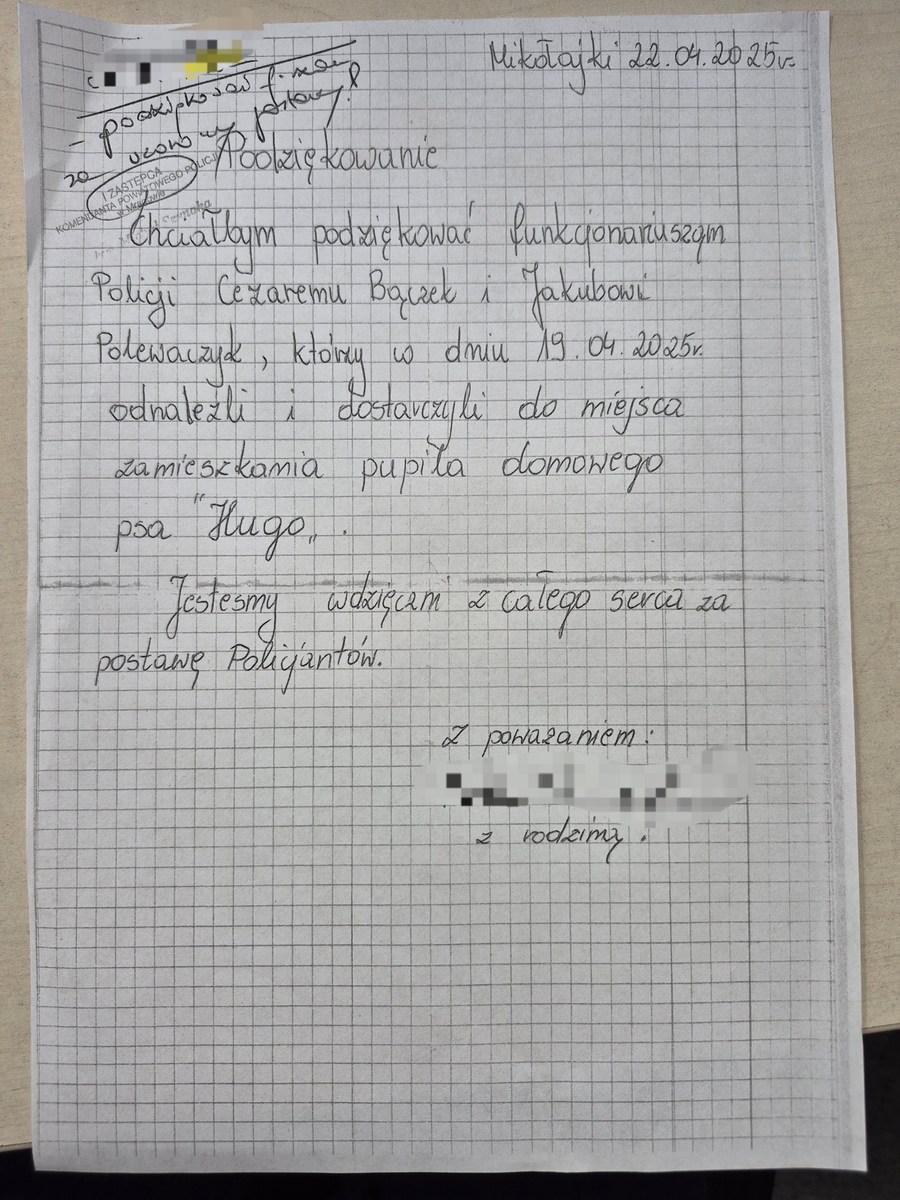 Mikołajki 22.04.2025r.
- podziękować
za
I ZASTĘPCA
KOMENDANTA POWIATOWEGO POLICJI
w Mrągowie
Podziękowanie
Chciałbym podziękować funkcjonariuszom
Policji Cezaremu Bączek i Jakubowi
Polewaczyk, którzy w dniu 19.04.2025r.
odnaleźli i dostarczyli do miejsca
zamieszkania pupila domowego
psa "Hugo„.
Jesteśmy wdzięczni z całego serca za
postawę Policjantów.
Z poważaniem:
z rodziną.